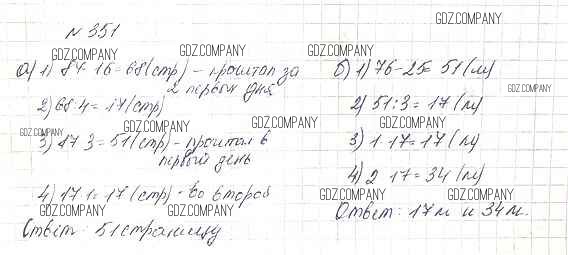 № 351
а) 1) 84-16=68 (стр) - прочитал за
2 первых дня
2) 68:4=17 (стр)
3) 17·3=51 (стр) - прочитал в
первый день
4) 17·1=17 (стр) - во второй
Ответ: 51 страницу
б) 1) 76-25=51 (м)
2) 51:3=17 (м)
3) 1·17=17 (м)
4) 2·17=34 (м)
Ответ: 17 м и 34 м.
GDZ.COMPANY
GDZ.COMPANY
GDZ.COMPANY
GDZ.COMPANY
GDZ.COMPANY
GDZ.COMPANY
GDZ.COMPANY
GDZ.COMPANY
GDZ.COMPANY
GDZ.COMPANY
GDZ.COMPANY
GDZ.COMPANY
GDZ.COMPANY